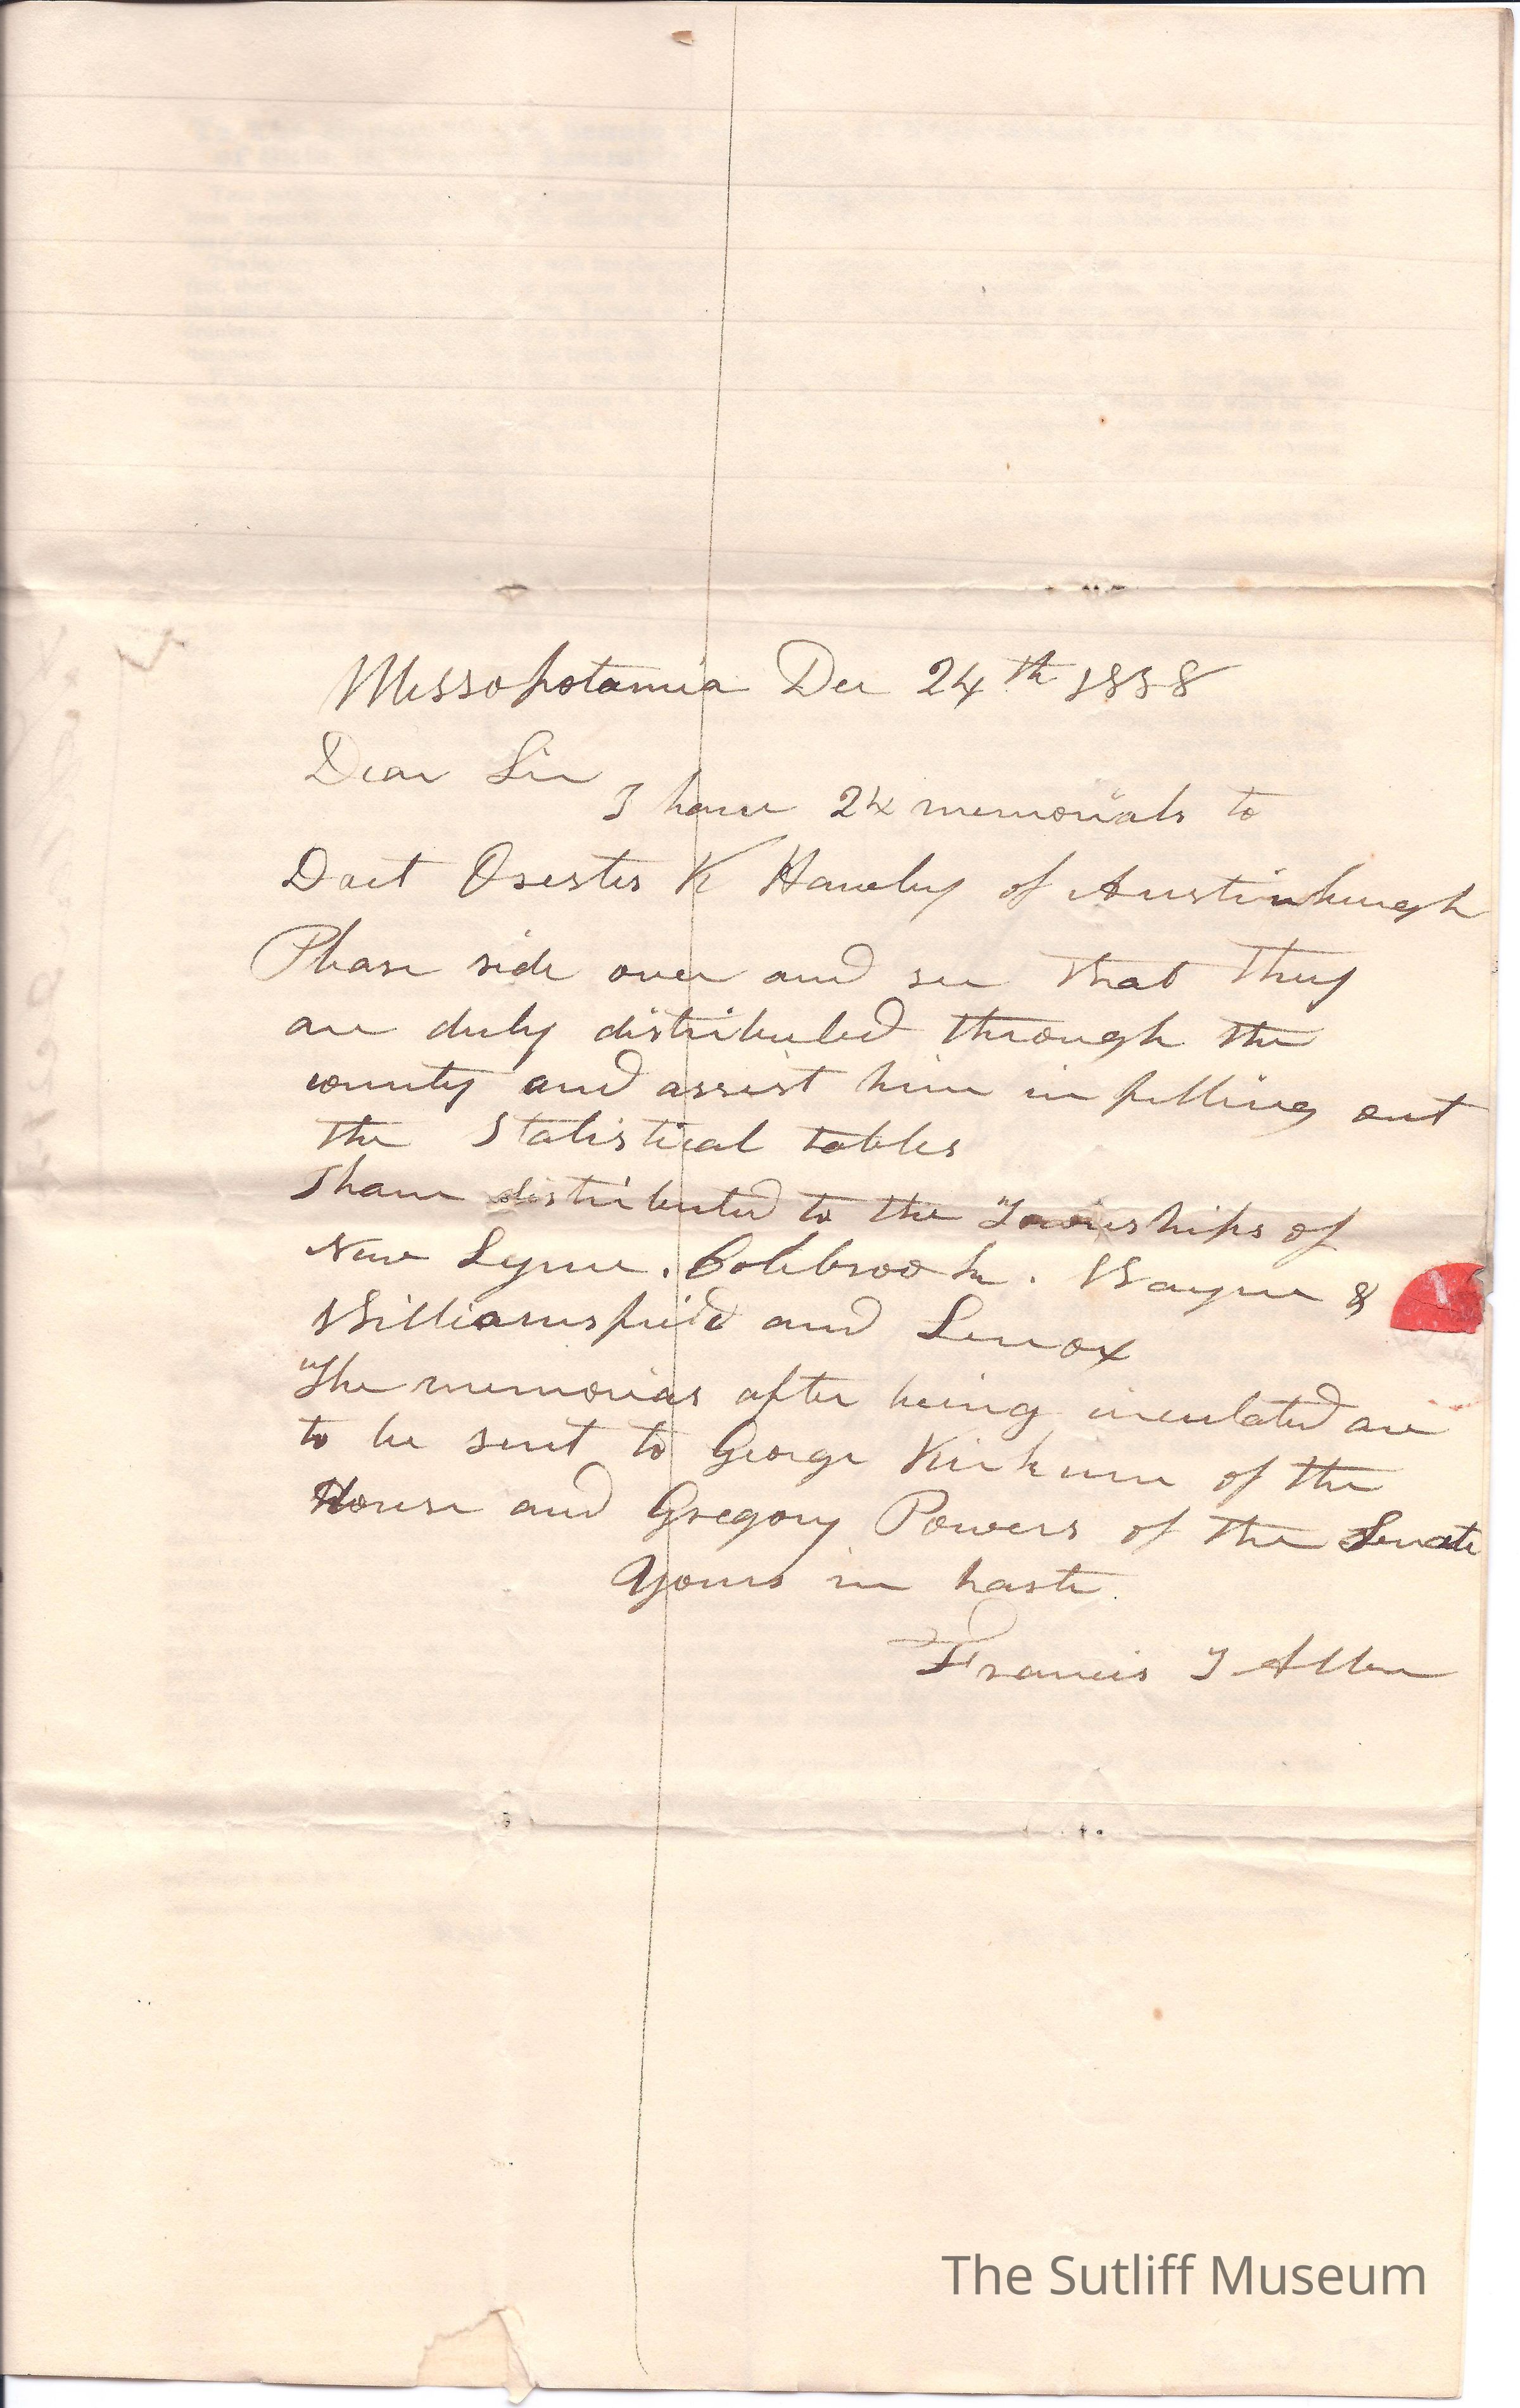 Messopotamia Dec 24th 1838
Dear Sir
I have 24 memorials to
Doct Orestes K Hawley of Austinburgh
Please ride over and see that they
are duly distributed through the
county and assist him in filling out
the Statistical tables
I have distributed to the Townships of
New Lyme. Colebrook. Wayne &
Williamsfield and Lenox
The memorias after being circulated are
to be sent to George Kirkum of the
House and Gregory Powers of the Senate
Yours in haste.
Francis I Allen
The Sutliff Museum